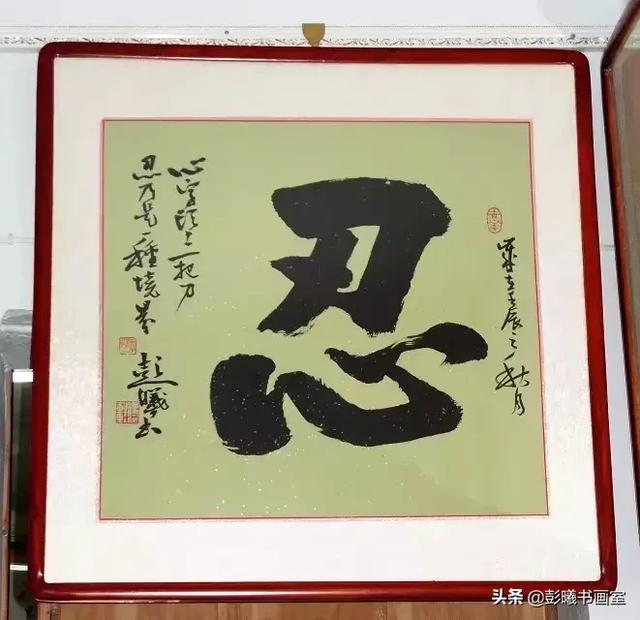 岁在壬辰之秋月
忍
心字头上一把刀
忍乃是一种境界
彭曦书
头条@彭曦书画室